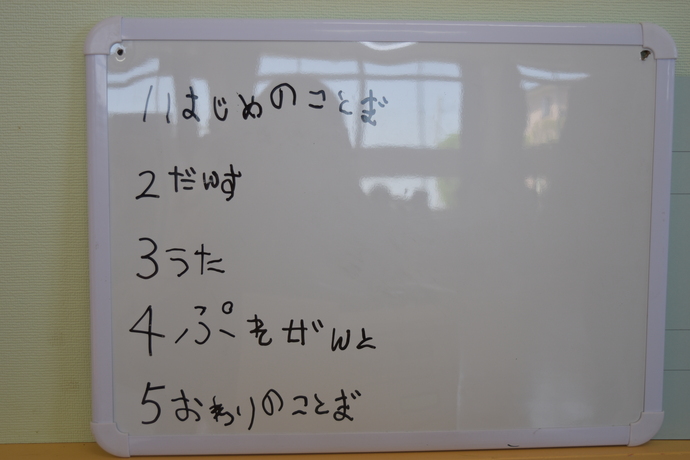 1はじめのことば
2だんす
3うた
4ぷれぜんと
5おわりのことば